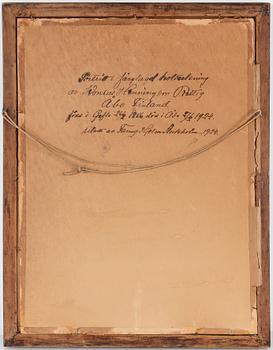 Porträtt i färglagd kolteckning
av Konsul Henning von Rettig
Åbo Finland
född i Gefle 1886 död i Åbo 1924
utfört av Stockholm 1924.